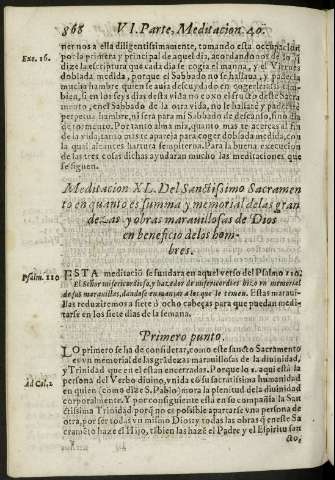 868 VI. Parte, Meditacion 40.
nernos a ella diligentissimamente, tomando esta ocupacion
Exo. 16. por la primera y principal de aquel dia, acordandonos de lo q̃
dize la escriptura que cada dia se cogia el manna, y el Viernes
doblada medida, porque el Sabbado no se hallaua, y padecia
mucho hambre quien se auia descuydado en cogerle: assi tã
bien, si en los seys dias desta vida no coxo el fructo deste Sacra
mento, en el Sabbado de la otra vida, no le hallarè y padecere
perpetua hambre, ni serà para mi Sabbado de descanso, sino dia
de tormento. Por tanto alma mia, quanto mas te acercas al fin
de la vida, tanto màs te apareja para coger doblada medida, con
la qual alcances hartura sempiterna. Para la buena execucion
de las tres cosas dichas ayudaran mucho las meditaciones que
se siguen.
Meditacion XL. Del Sanctissimo Sacramen
to en quanto es summa y memorial de las gran
dezas y obras marauillosas de Dios
en beneficio de los hom-
bres.
Psalm. 110 ESTA meditaciõ se fundara en aquel verso del Psalmo 110.
El Señor misericordioso, y hazedor de misericordias hizo vn memorial
de sus marauillas, dandose en manjar a los que le temen. Estas maraui
llas reduziremos a siete ò ocho cabeças para que puedan medi-
tarse en los siete dias de la semana.
Primero punto.
LO primero se ha de considerar, como este sancto Sacramento
es vn memorial de las grãdezas marauillosas de la diuinidad,
y Trinidad que en el estan encerradas. Porque lo 1. aqui està la
persona del Verbo diuino, vnida cõ su sacratissima humanidad
Ad Col. 2 en quien (como dize S. Pablo) mora la plenitud de la diuinidad
corporalmente. Y por consiguiente està en su compañia la San
ctissima Trinidad porq̃ no es possible apartarse vna persona de
otra, por ser todas vn mismo Dios: y todas las obras q̃ en este Sa
cramẽto haze el Hijo, tãbien las haze el Padre y el Espiritu san
cto,